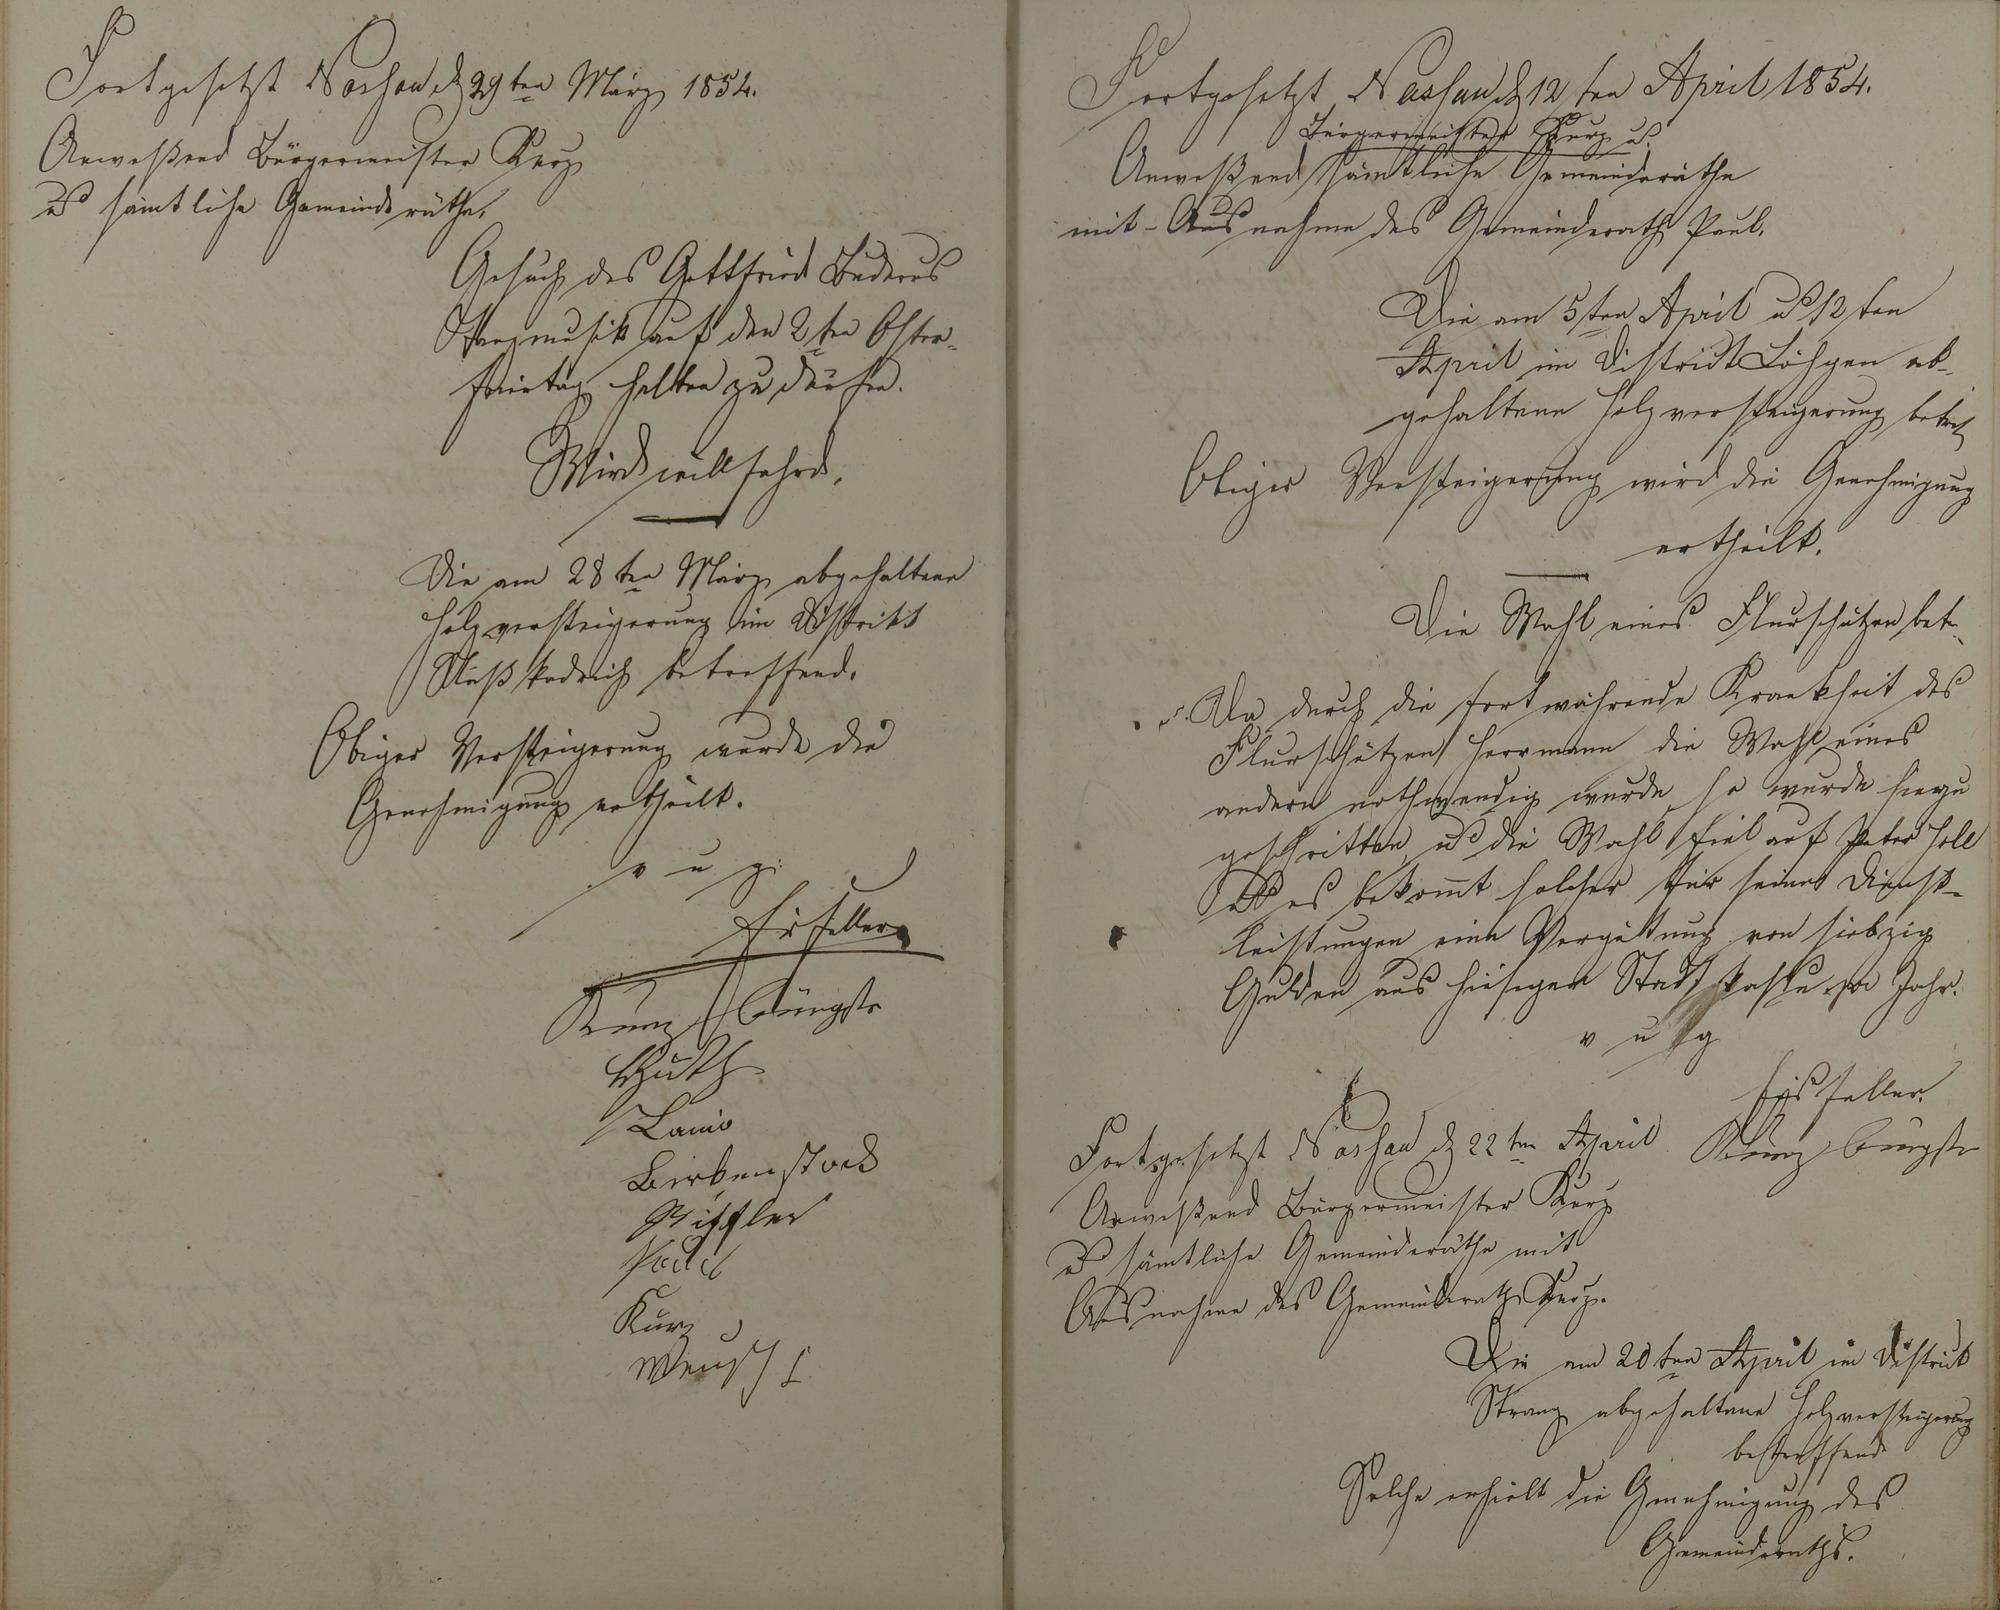 Fortgesetzt Nassau d 29ten März 1854.
Anweßend Bürgermeister Kurz
u sämtliche Gemeinderäthe.
Gesuch des Gottfried Buderus
Tanzmusik auf den 2ten Oster-
feiertag halten zu dürfen.
Wird willfahrd.
Die am 28ten März abgehaltene
Holzversteigerung im District
betreffend.
Obiger Versteigerung wurde die
Genehmigung ertheilt.
v u g.
Kunz Büngstr
Guth
Birkenstock
Paul
Kurz
Fortgesetzt Nassau d 12ten April 1854.
Bürgermeister Kurz u.
Anweßend sämtliche Gemeinderäthe
mit Ausnahme des Gemeinderath Paul.
Die am 5ten April u 12ten
April im District Löhgen ab-
gehaltene Holzversteigerung betref
Obiger Versteigerung wird die Genehmigung
ertheilt.
Die Wahl eines Flurschützen betr.
Da durch die fortwährende Krankheit des
Flurschützen Herrmann die Wahl eines
andern nothwendig wurde, so wurde hiezu
geschritten, u die Wahl fiel auf Peter Holl
u es bekomt solcher für seine Dienst-
leistungen eine Vergütung von siebzig
Gulden aus hiesiger Stadtkasse pr Jahr.
v u g
Kunz Büngstr
Fortgesetzt Nassau d 22ten April
Anweßend Bürgermeister Kurz
u sämtliche Gemeinderäthe mit
Ausnahme des Gemeinderath Kurz.
Die am 20ten April im District
Strang abgehaltene Holzversteigerung
betreffend
Solche erhielt die Genehmigung des
Gemeinderaths.